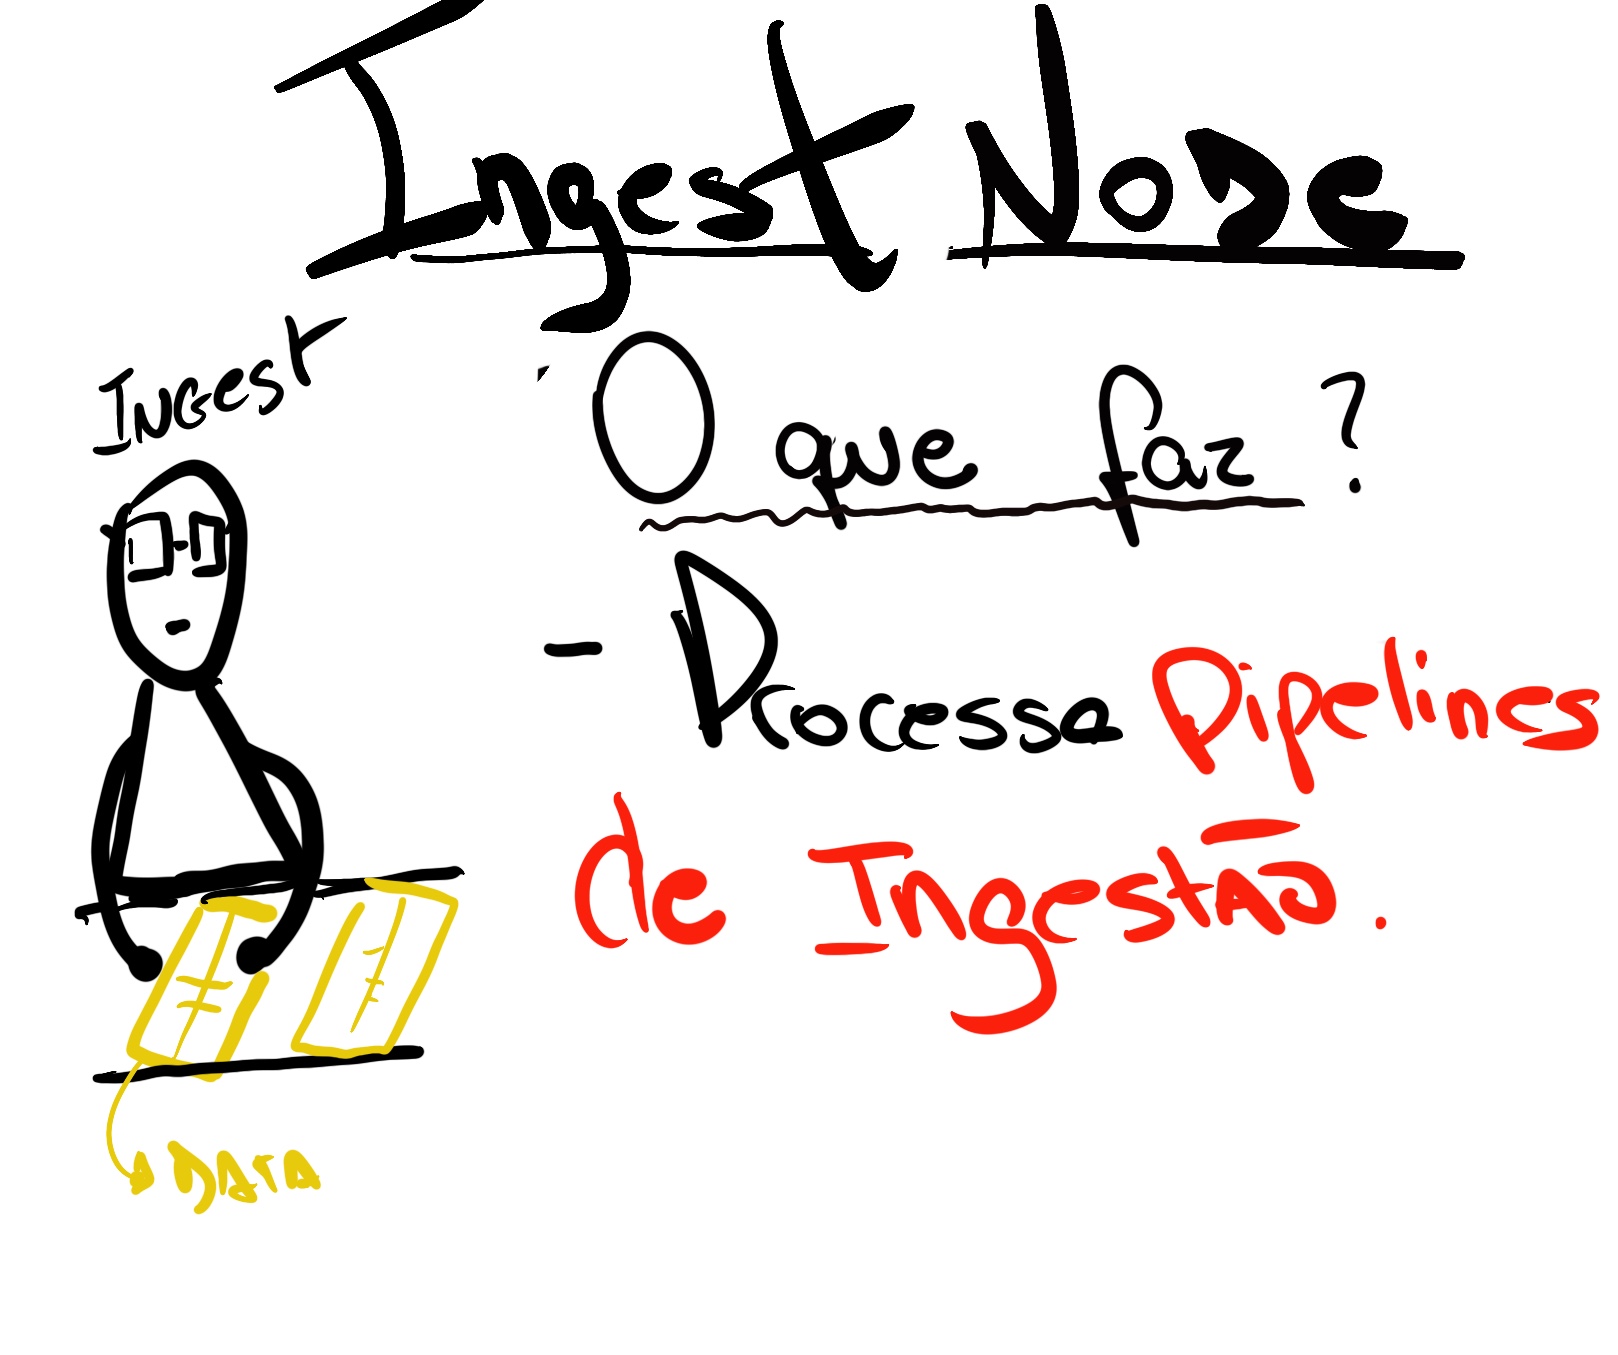 Ingest Node
Ingest
O que faz?
- Processa Pipelines
de Ingestão.
Data